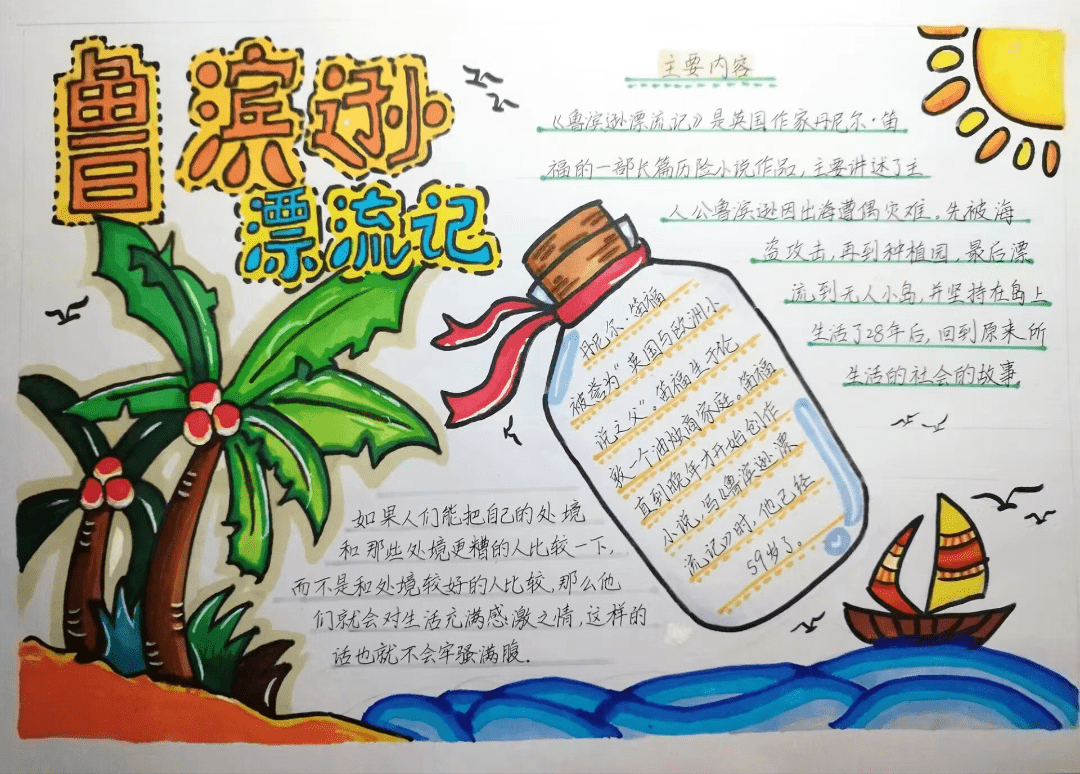 鲁滨逊
漂流记
主要内容
《鲁滨逊漂流记》是英国作家丹尼尔·笛
福的一部长篇历险小说作品,主要讲述了主
人公鲁滨逊因出海遭遇灾难。先被海
盗攻击,再到种植园,最后漂
流到无人小岛,并坚持在岛上
生活了28年后,回到原来所
生活的社会的故事
丹尼尔·笛福
被誉为"英国与欧洲小
说之父"。笛福生于伦
敦一个油烛商家庭。笛福
直到晚年才开始创作
小说,写《鲁滨逊漂
流记》时,他已经
59岁了。
如果人们能把自己的处境
和那些处境更糟的人比较一下,
而不是和处境较好的人比较,那么他
们就会对生活充满感激之情,这样的
话也就不会牢骚满腹.